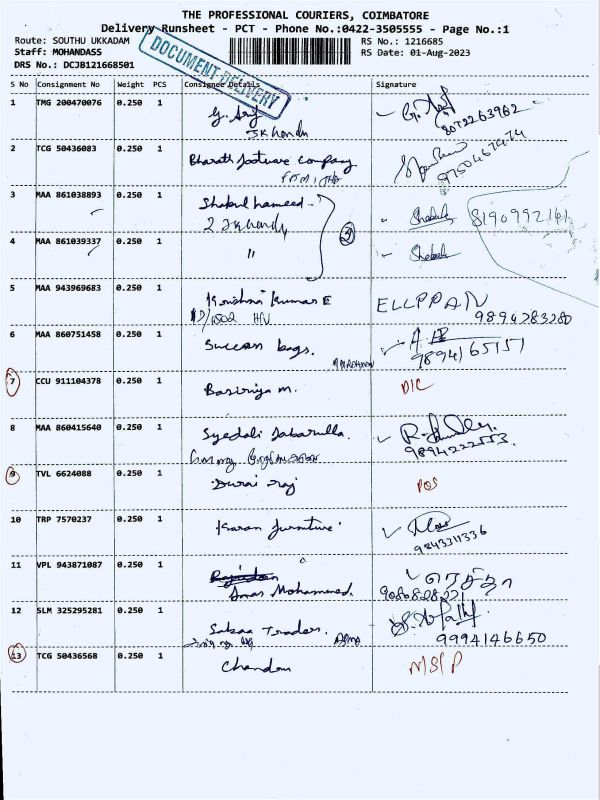 THE PROFESSIONAL COURIERS, COIMBATORE
Delivery Runsheet - PCT - Phone No.:0422-3505555 - Page No.:1
Route: SOUTHU UKKADAM
RS No.: 1216685
Staff: MOHANDASS
RS Date: 01-Aug-2023
DRS No.: DCJB121668501
DOCUMENT DELIVERY
S No Consignment No Weight PCS Consignee Details Signature
1 TMG 200470076 0.250 1
8072263962
2 TCG 50436083 0.250 1 Bharath footware company
9750467474
3 MAA 861038893 0.250 1 Shahul hameed
8190992161
4 MAA 861039337 0.250 1 "
5 MAA 943969683 0.250 1 Krishna Kumar E ELLPPAN
9894283280
6 MAA 860751458 0.250 1 Success bags.
9894165151
7 CCU 911104378 0.250 1 Basiriya m. DIC
8 MAA 860415640 0.250 1 Syedali Jabarulla.
9894222553.
9 TVL 6624088 0.250 1 Durai raj
10 TRP 7570237 0.250 1 Karan furniture
9843311336
11 VPL 943871087 0.250 1
Amar Mohammed.
12 SLM 325295281 0.250 1 Sabaa Traders.
9994146650
13 TCG 50436568 0.250 1 Chandan